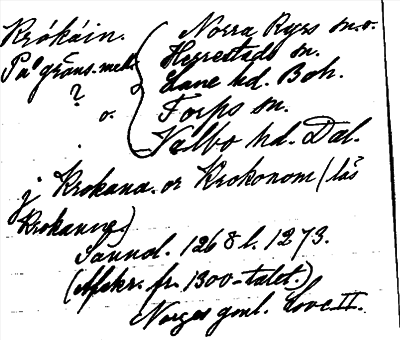 Krókáin.
Norra Ryrs sn. o.
Herrestads sn.
På gräns. mell.
Lane hd. Boh.
?
o.
Torps sn.
Valbo hd. Dal.
j Krokana. or Krokonom (läs
Krokanom)
Sannol. 1268 l. 1273.
(Afskr. fr. 1300-talet.)
Norges gml. Love II.